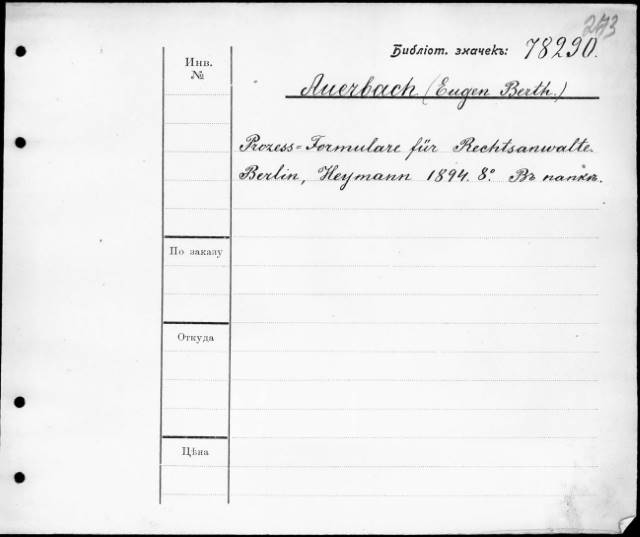 273
Библіот. значекъ: 78290.
Инв.
№
Auerbach (Eugen Berth.)
Prozess=Formulare für Rechtsanwalte.
Berlin, Heymann 1894. 8º. Въ папкѣ.
По заказу
Откуда
Цѣна